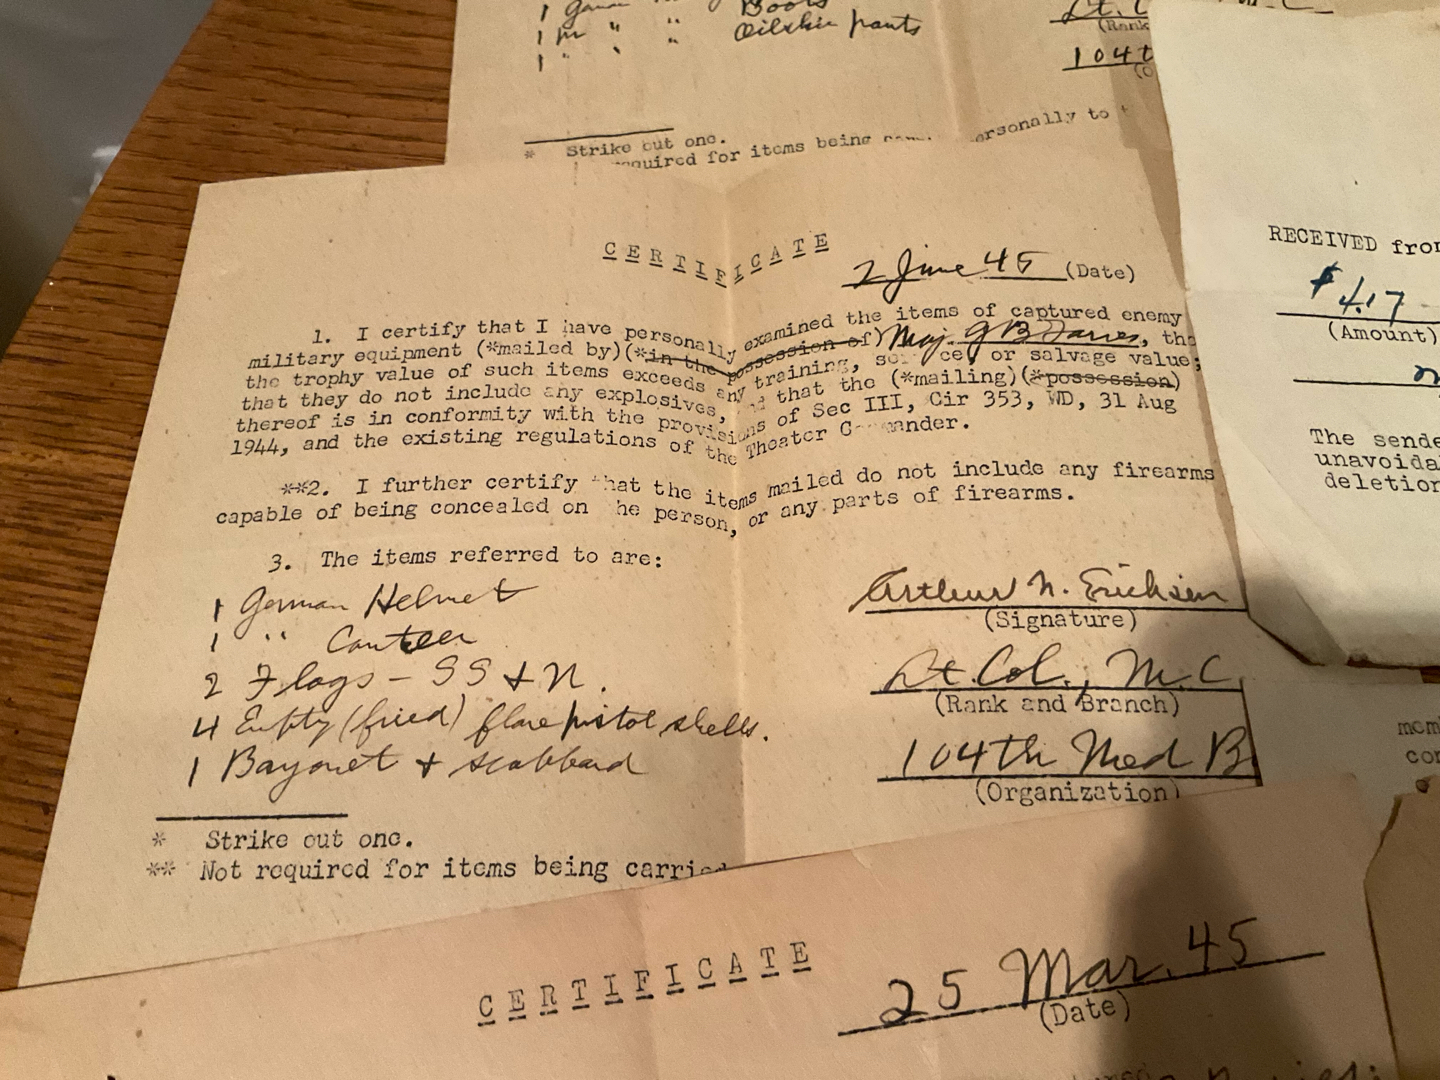 1 German
Boots
1 pr " " Oilskin pants
1 " " "
Lt. C
(Rank
104t
* Strike out one.
required for items being
ersonally to
CERTIFICATE
2 June 45 (Date)
1. I certify that I have personally examined the items of captured enemy
military equipment (*mailed by)(*in the possession of) Maj. G B Davies, the
the trophy value of such items exceeds any training, service, or salvage value;
that they do not include any explosives, and that the (*mailing)(*possession)
thereof is in conformity with the provisions of Sec III, Cir 353, WD, 31 Aug
1944, and the existing regulations of the Theater Commander.
**2. I further certify that the items mailed do not include any firearms
capable of being concealed on the person, or any parts of firearms.
3. The items referred to are:
1 German Helmet
1 " Canteen
2 Flags - SS & N.
4 Empty (fried) flare pistol shells.
1 Bayonet & scabbard
Arthur N. Erickson
(Signature)
Lt. Col., M.C.
(Rank and Branch)
104th Med B
(Organization)
* Strike out one.
** Not required for items being carried
RECEIVED from
$4.17
(Amount)
The sende
unavoida
deletion
mom
con
CERTIFICATE
25 Mar. 45
(Date)